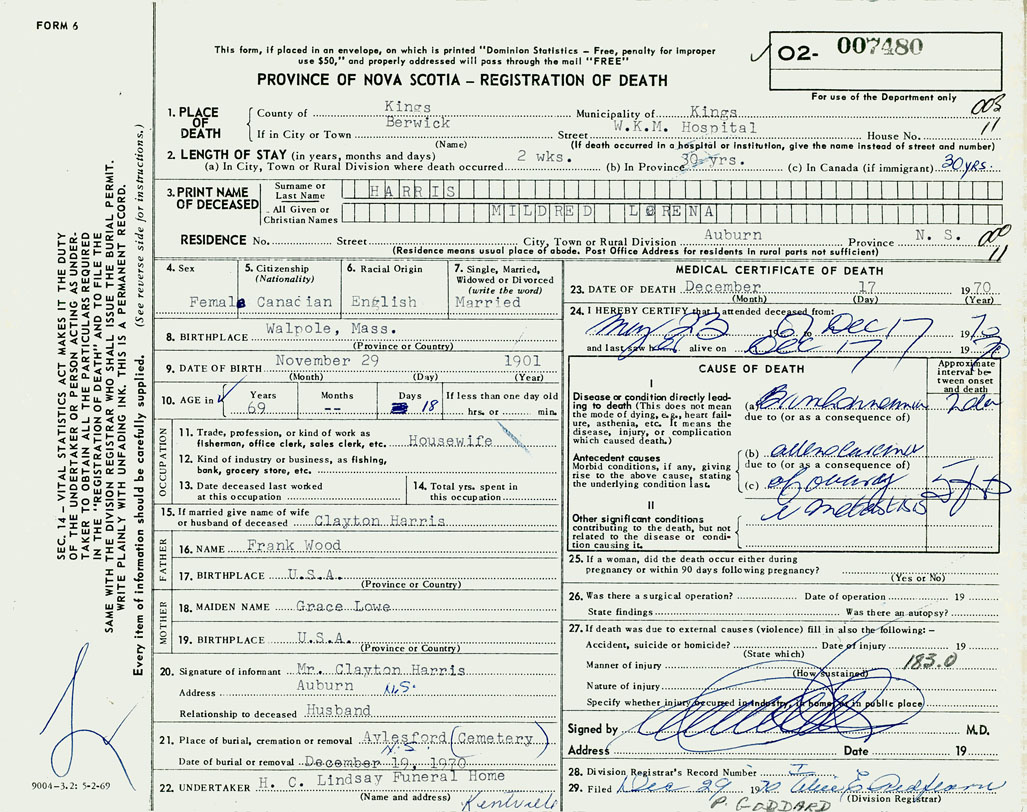 FORM 6
This form, if placed in an envelope, on which is printed "Dominion Statistics – Free, penalty for improper
use $50," and properly addressed will pass through the mail "FREE"
PROVINCE OF NOVA SCOTIA – REGISTRATION OF DEATH
02- 007480
For use of the Department only
003
11
1. PLACE OF DEATH
County of Kings Municipality of Kings
If in City or Town Berwick Street W.K.M. Hospital House No.
(Name) (If death occurred in a hospital or institution, give the name instead of street and number)
2. LENGTH OF STAY (in years, months and days)
(a) In City, Town or Rural Division where death occurred 2 wks. (b) In Province 30 yrs. (c) In Canada (if immigrant) 30 yrs.
3. PRINT NAME OF DECEASED
Surname or Last Name HARRIS
All Given or Christian Names MILDRED LORENA
RESIDENCE No. Street City, Town or Rural Division Auburn Province N. S.
000
11
(Residence means usual place of abode. Post Office Address for residents in rural parts not sufficient)
4. Sex Female
5. Citizenship (Nationality) Canadian
6. Racial Origin English
7. Single, Married, Widowed or Divorced (write the word) Married
8. BIRTHPLACE Walpole, Mass.
(Province or Country)
9. DATE OF BIRTH November 29 1901
(Month) (Day) (Year)
10. AGE in Years 69 Months -- Days 18 If less than one day old
hrs. or min.
OCCUPATION
11. Trade, profession, or kind of work as
fisherman, office clerk, sales clerk, etc. Housewife
12. Kind of industry or business, as fishing,
bank, grocery store, etc.
13. Date deceased last worked
at this occupation
14. Total yrs. spent in
this occupation
15. If married give name of wife
or husband of deceased Clayton Harris
FATHER
16. NAME Frank Wood
17. BIRTHPLACE U.S.A.
(Province or Country)
MOTHER
18. MAIDEN NAME Grace Lowe
19. BIRTHPLACE U.S.A.
(Province or Country)
20. Signature of informant Mr. Clayton Harris
Address Auburn N.S.
Relationship to deceased Husband
21. Place of burial, cremation or removal Aylesford (Cemetery)
N.S.
Date of burial or removal December 19, 1970
22. UNDERTAKER H. C. Lindsay Funeral Home
(Name and address) Kentville
MEDICAL CERTIFICATE OF DEATH
23. DATE OF DEATH December 17 1970
(Month) (Day) (Year)
24. I HEREBY CERTIFY that I attended deceased from:
May 23 1967 Dec 17 1970
and last saw her alive on Dec 17 1970
CAUSE OF DEATH
Approximate interval between onset and death
I
Disease or condition directly leading
to death (This does not mean
the mode of dying, e.g., heart failure,
asthenia, etc. It means the
disease, injury, or complication
which caused death.)
(a)
due to (or as a consequence of)
Antecedent causes
Morbid conditions, if any, giving
rise to the above cause, stating
the underlying condition last.
(b)
due to (or as a consequence of)
(c) of ovary
II
Other significant conditions
contributing to the death, but not
related to the disease or condition
causing it.
metastasis
25. If a woman, did the death occur either during
pregnancy or within 90 days following pregnancy?
(Yes or No)
26. Was there a surgical operation? Date of operation 19
State findings Was there an autopsy?
27. If death was due to external causes (violence) fill in also the following: –
Accident, suicide or homicide? Date of injury 19
(State which)
Manner of injury 183.0
(How sustained)
Nature of injury
Specify whether injury occurred in industry, in home, or in public place
Signed by M.D.
Address Date 19
28. Division Registrar's Record Number
29. Filed Dec 29 1970
(Division Registrar)
P. GODDARD
SEC. 14 – VITAL STATISTICS ACT MAKES IT THE DUTY
OF THE UNDERTAKER OR PERSON ACTING AS UNDERTAKER
TO OBTAIN ALL THE PARTICULARS REQUIRED
IN THE "REGISTRATION OF DEATH" AND TO FILE THE
SAME WITH THE DIVISION REGISTRAR WHO SHALL ISSUE THE BURIAL PERMIT.
WRITE PLAINLY WITH UNFADING INK. THIS IS A PERMANENT RECORD.
Every item of information should be carefully supplied. (See reverse side for instructions.)
9004-3.2: 5-2-69